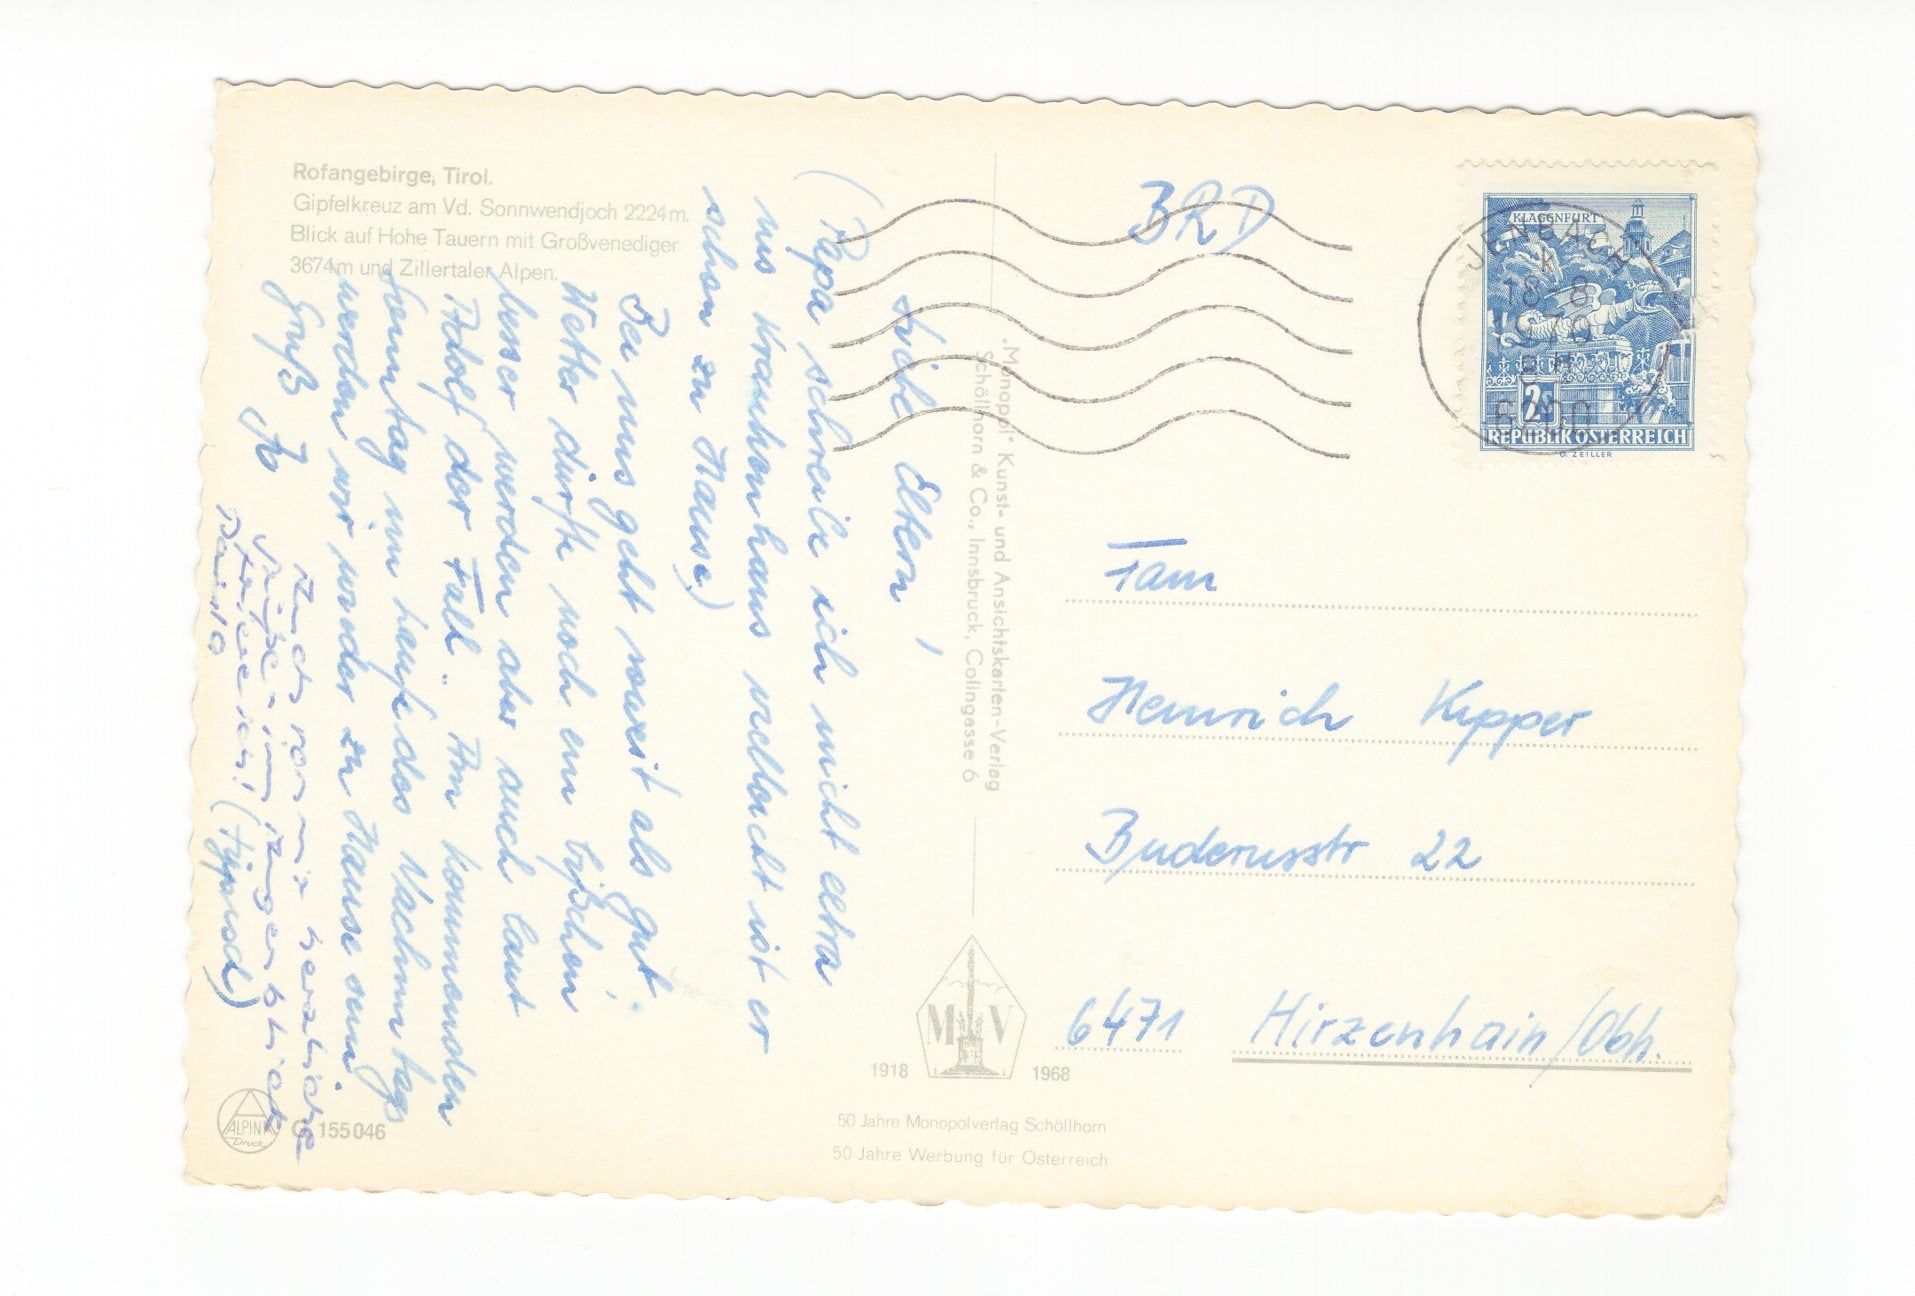 Rofangebirge, Tirol.
Gipfelkreuz am Vd. Sonnwendjoch 2224m.
Blick auf Hohe Tauern mit Großvenediger
3674m und Zillertaler Alpen.
Liebe Eltern!
(Papa schreibe ich nicht extra
ins Krankenhaus vielleicht ist er
schon zu Hause)
Bei uns geht soweit als gut.
Wetter dürfte noch ein bißchen
besser werden aber auch laut
Adolf der Fall". Am kommenden
Sonntag im laufe des Nachmittags
werden wir wieder zu Hause sein
Gruß
Auch von mir herzliche
Grüße
(Gipsrod)
"Monopol" Kunst- und Ansichtskarten-Verlag
Schöllhorn & Co., Innsbruck, Colingasse 6
M V
1918 1968
50 Jahre Monopolverlag Schöllhorn
50 Jahre Werbung für Österreich
ALPINA
Druck
G 155046
BRD
KLAGENFURT
2S
REPUBLIK ÖSTERREICH
O. ZEILLER
JENBACH
18-8
6200
Fam
Heinrich Kipper
Buderusstr 22
6471 Hirzenhain/Obh.